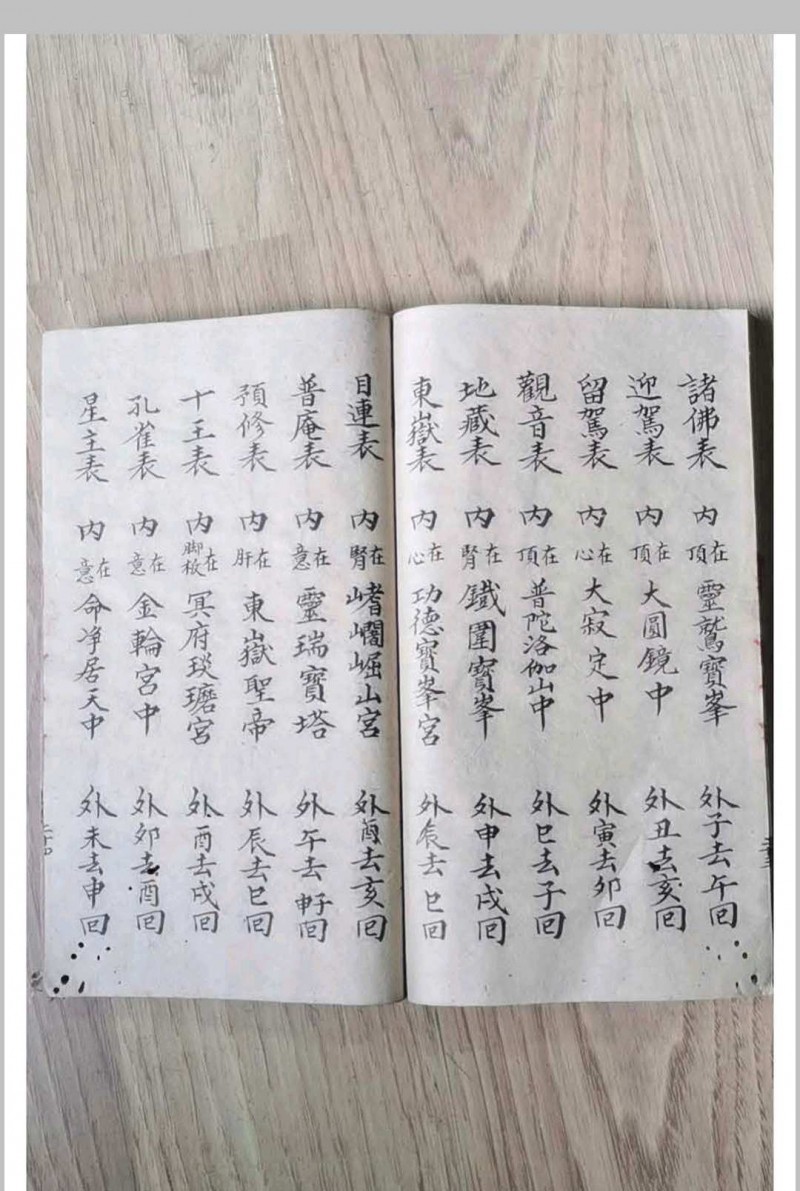 諸佛表 内在頂 靈鷲寶峯 外子去午回
迎駕表 内在頂 大圓鏡中 外丑去亥回
留駕表 内在心 大寂定中 外寅去卯回
觀音表 内在頂 普陀洛伽山中 外巳去子回
地藏表 内在腎 鐵圍寶峯 外申去戌回
東嶽表 内在心 功德寶峯宮 外辰去巳回
目連表 内在腎 嵴闍崛山宮 外酉去亥回
普庵表 内在意 靈瑞寶塔 外午去申子回
預修表 内在肝 東嶽聖帝 外辰去巳回
十王表 内在脚板 冥府琰𤩹宮 外酉去戌回
孔雀表 内在意 金輪宮中 外卯去酉回
星主表 内在意 命净居天中 外未去申回